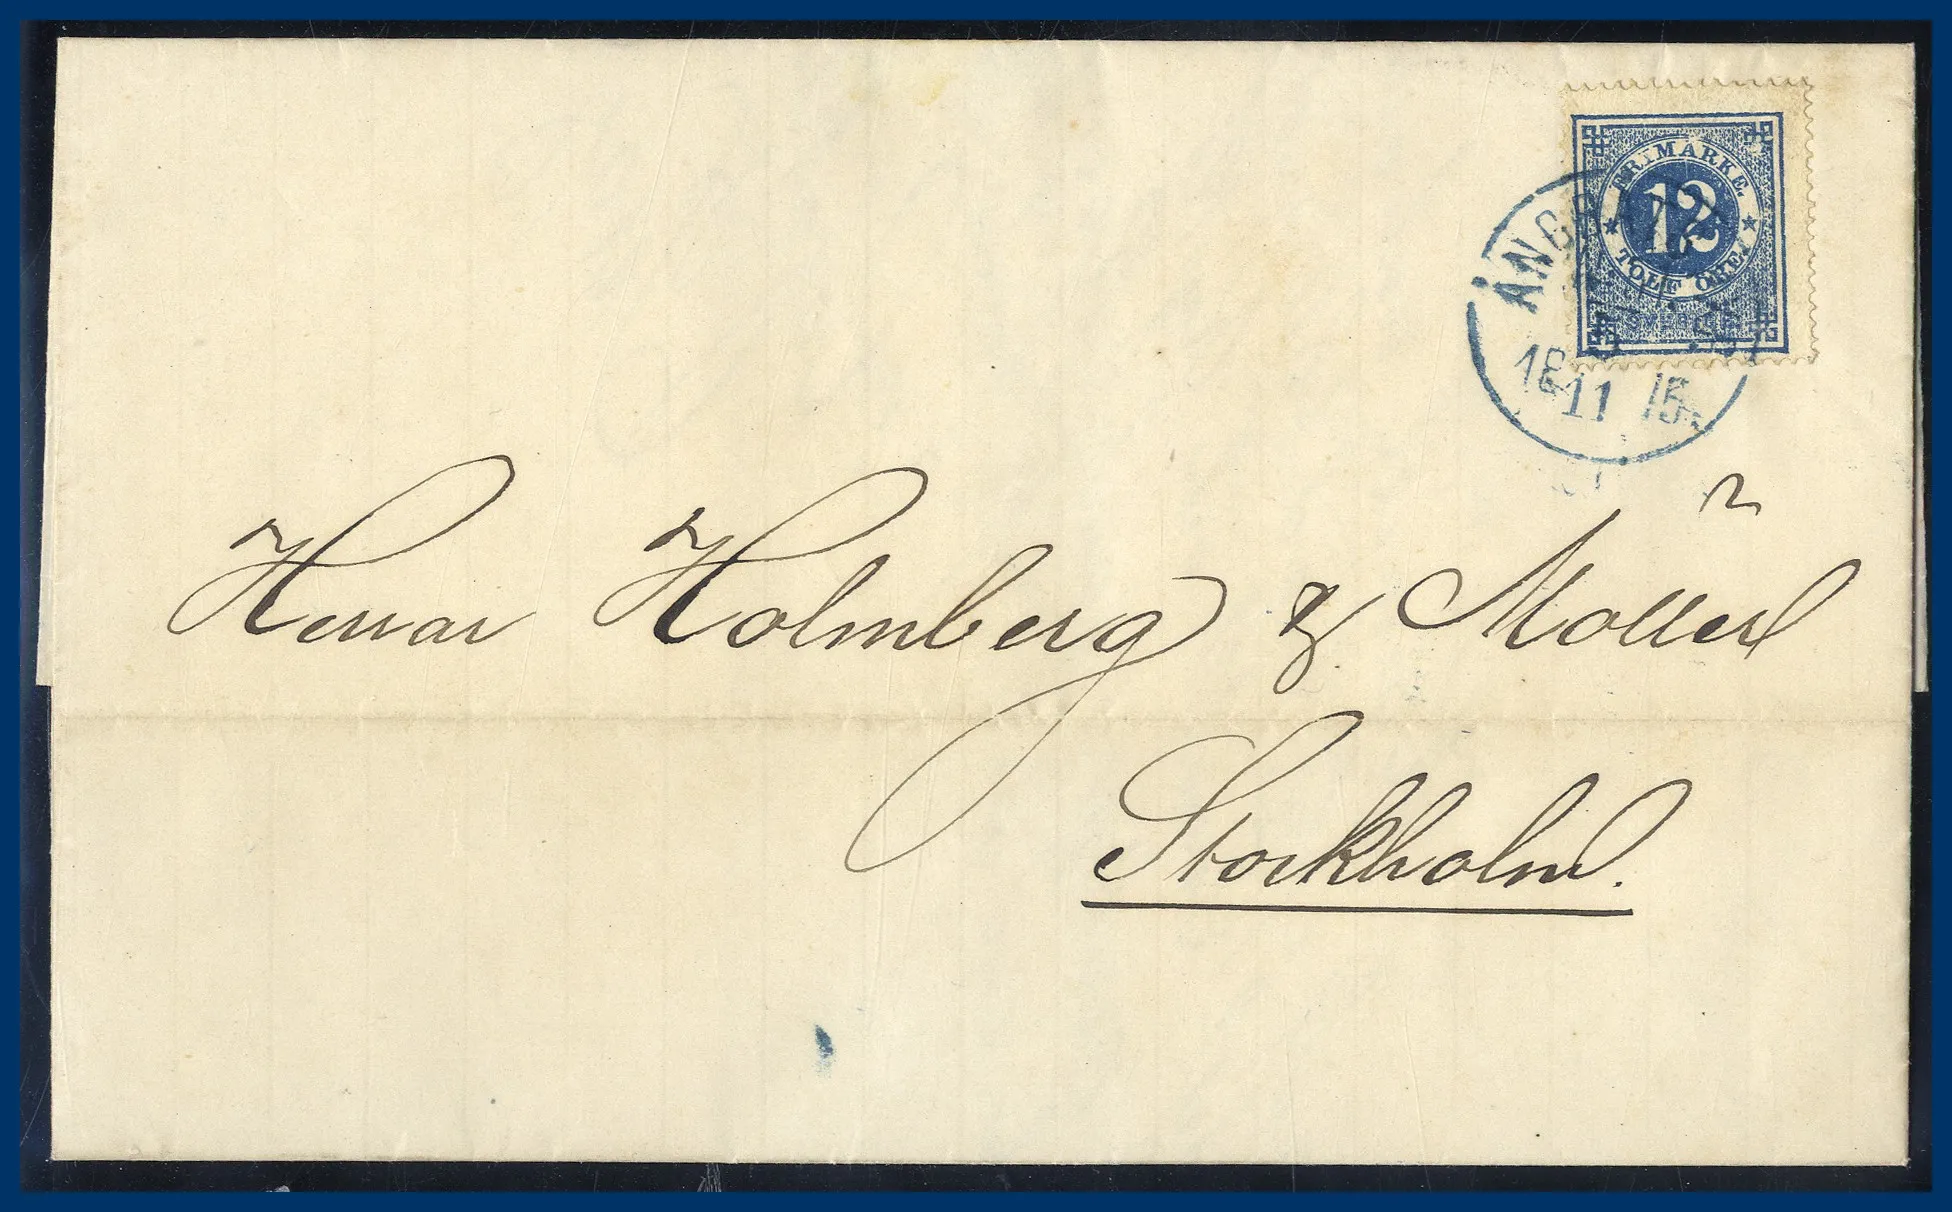 FRIMÄRKE.
12
TOLF ÖRE.
SVERIGE
18 11 75
Herrar Holmberg & Möller
Stockholm.